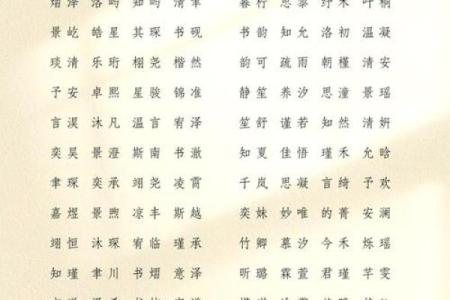 景屹 皓星 其琛 书砚 书韵 知允 洛初 温凝
琰清 乐珩 栩尧 楷然 韵可 疏雨 朝槿 清安
予安 卓熙 星骏 锦准 静笙 养汐 思潼 景瑶
言淏 沐凡 温言 宥泽 笙舒 谨若 知然 清妍
奕昊 景澄 斯南 书澈 知夏 佳悟 瑾禾 允晗
聿琛 奕承 翊尧 凌霄 千岚 思凝 言绮 予欢
嘉煜 景煦 凉丰 斯越 奕姝 妙唯 的菁 安澜
翊恒 沐琛 宥临 瑾承 竹卿 慕汐 今禾 烁瑶
知瑾 聿川 书熠 意泽 昕璐 霖萱 君瑾 芊雯